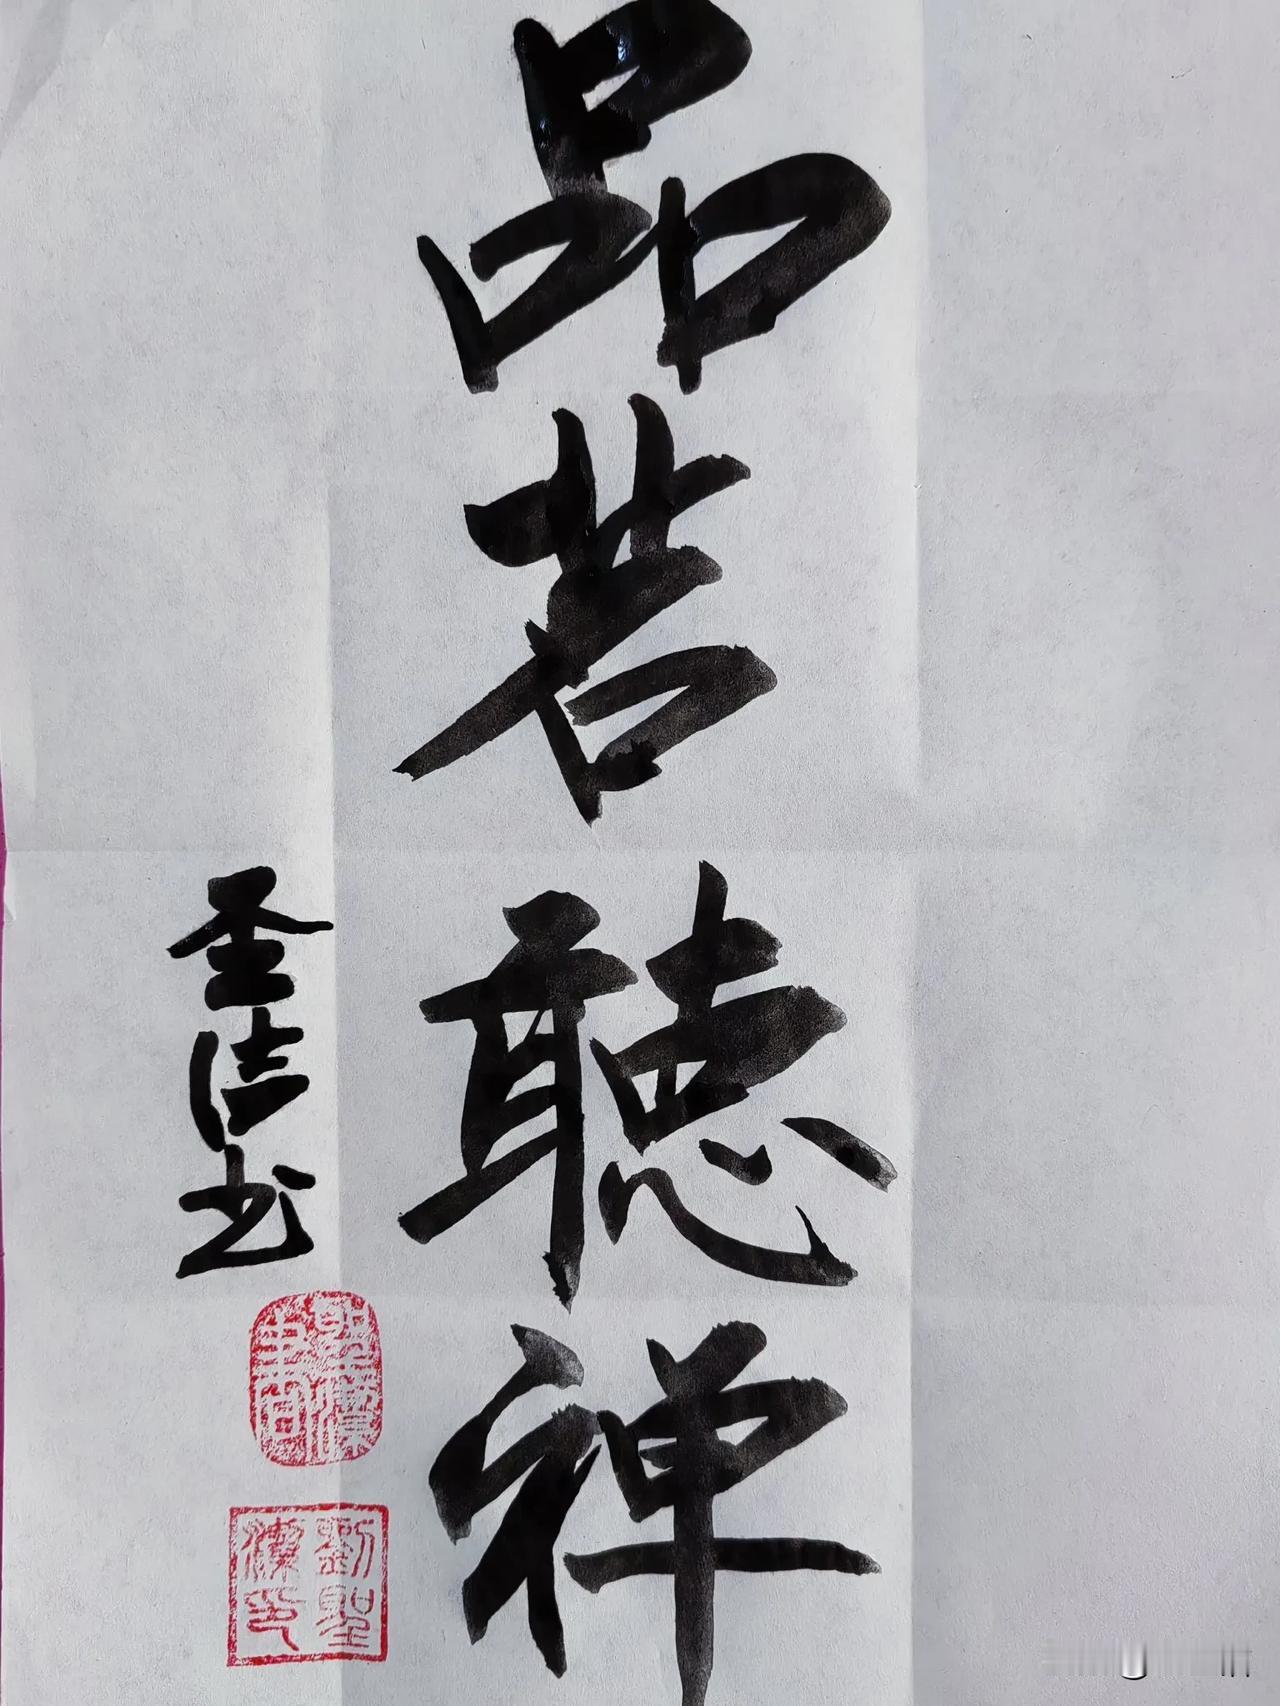 品茗聽禅
圣洁书
劉聖潔印